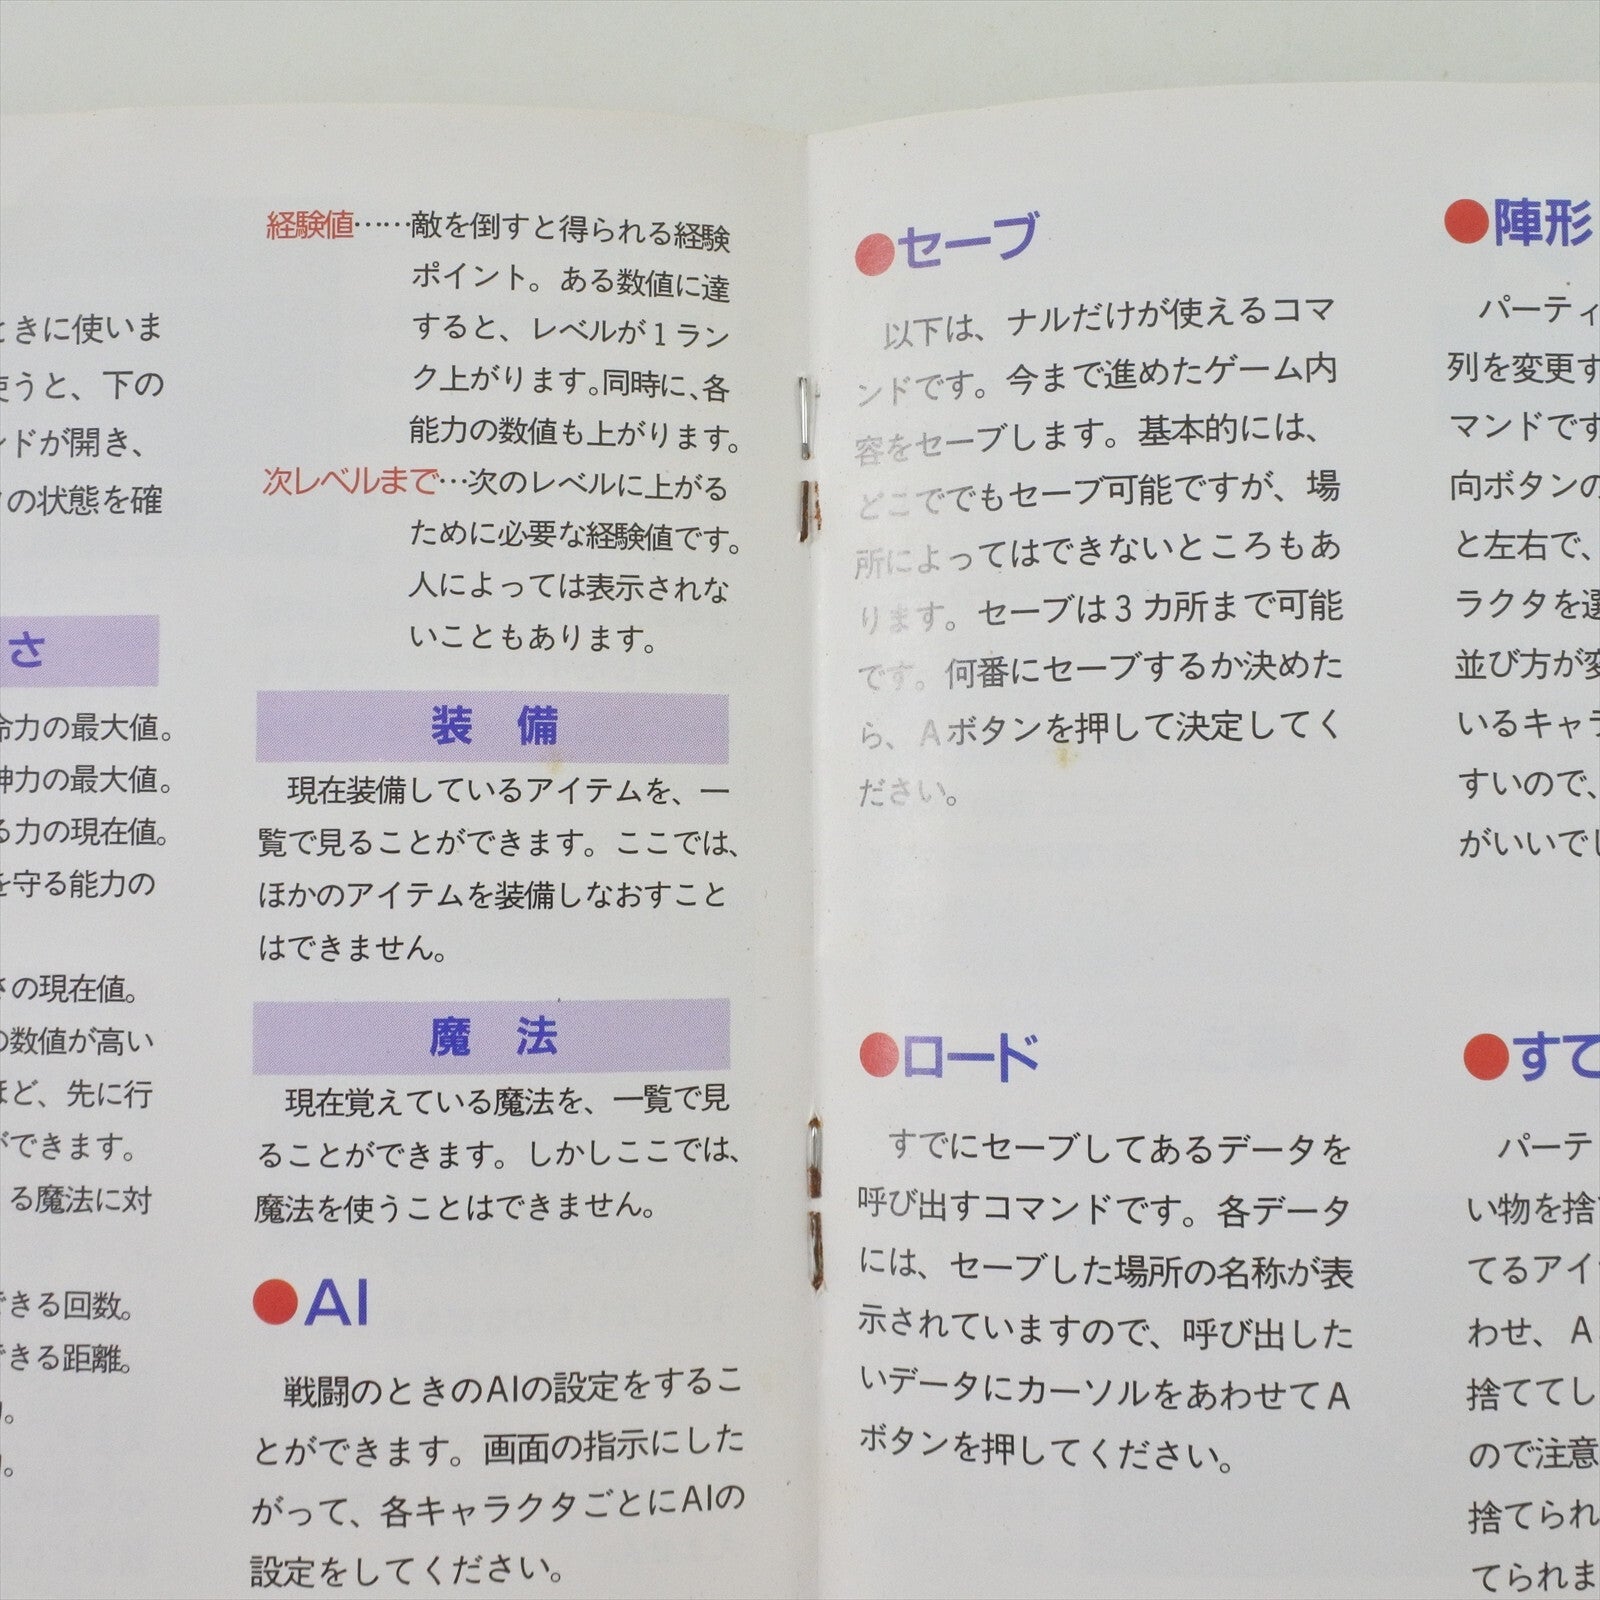 ときに使いま
使うと、下の
ンドが開き、
の状態を確
さ
命力の最大値。
神力の最大値。
る力の現在値。
を守る能力の
さの現在値。
の数値が高い
ほど、先に行
ができます。
る魔法に対
できる回数。
できる距離。
経験値……敵を倒すと得られる経験
ポイント。ある数値に達
すると、レベルが1ラン
ク上がります。同時に、各
能力の数値も上がります。
次レベルまで…次のレベルに上がる
ために必要な経験値です。
人によっては表示されな
いこともあります。
装 備
現在装備しているアイテムを、一
覧で見ることができます。ここでは、
ほかのアイテムを装備しなおすこと
はできません。
魔 法
現在覚えている魔法を、一覧で見
ることができます。しかしここでは、
魔法を使うことはできません。
●AI
戦闘のときのAIの設定をするこ
とができます。画面の指示にした
がって、各キャラクタごとにAIの
設定をしてください。
●セーブ
以下は、ナルだけが使えるコマ
ンドです。今まで進めたゲーム内
容をセーブします。基本的には、
どこででもセーブ可能ですが、場
所によってはできないところもあ
ります。セーブは3カ所まで可能
です。何番にセーブするか決めた
ら、Aボタンを押して決定してく
ださい。
●ロード
すでにセーブしてあるデータを
呼び出すコマンドです。各データ
には、セーブした場所の名称が表
示されていますので、呼び出した
いデータにカーソルをあわせてA
ボタンを押してください。
●陣形
パーティ
列を変更す
マンドです
向ボタンの
と左右で、
ラクタを選
並び方が変
いるキャラ
すいので、
がいいでし
●すて
パーテ
い物を捨て
てるアイ
わせ、A
捨ててし
ので注意
捨てられ
てられま